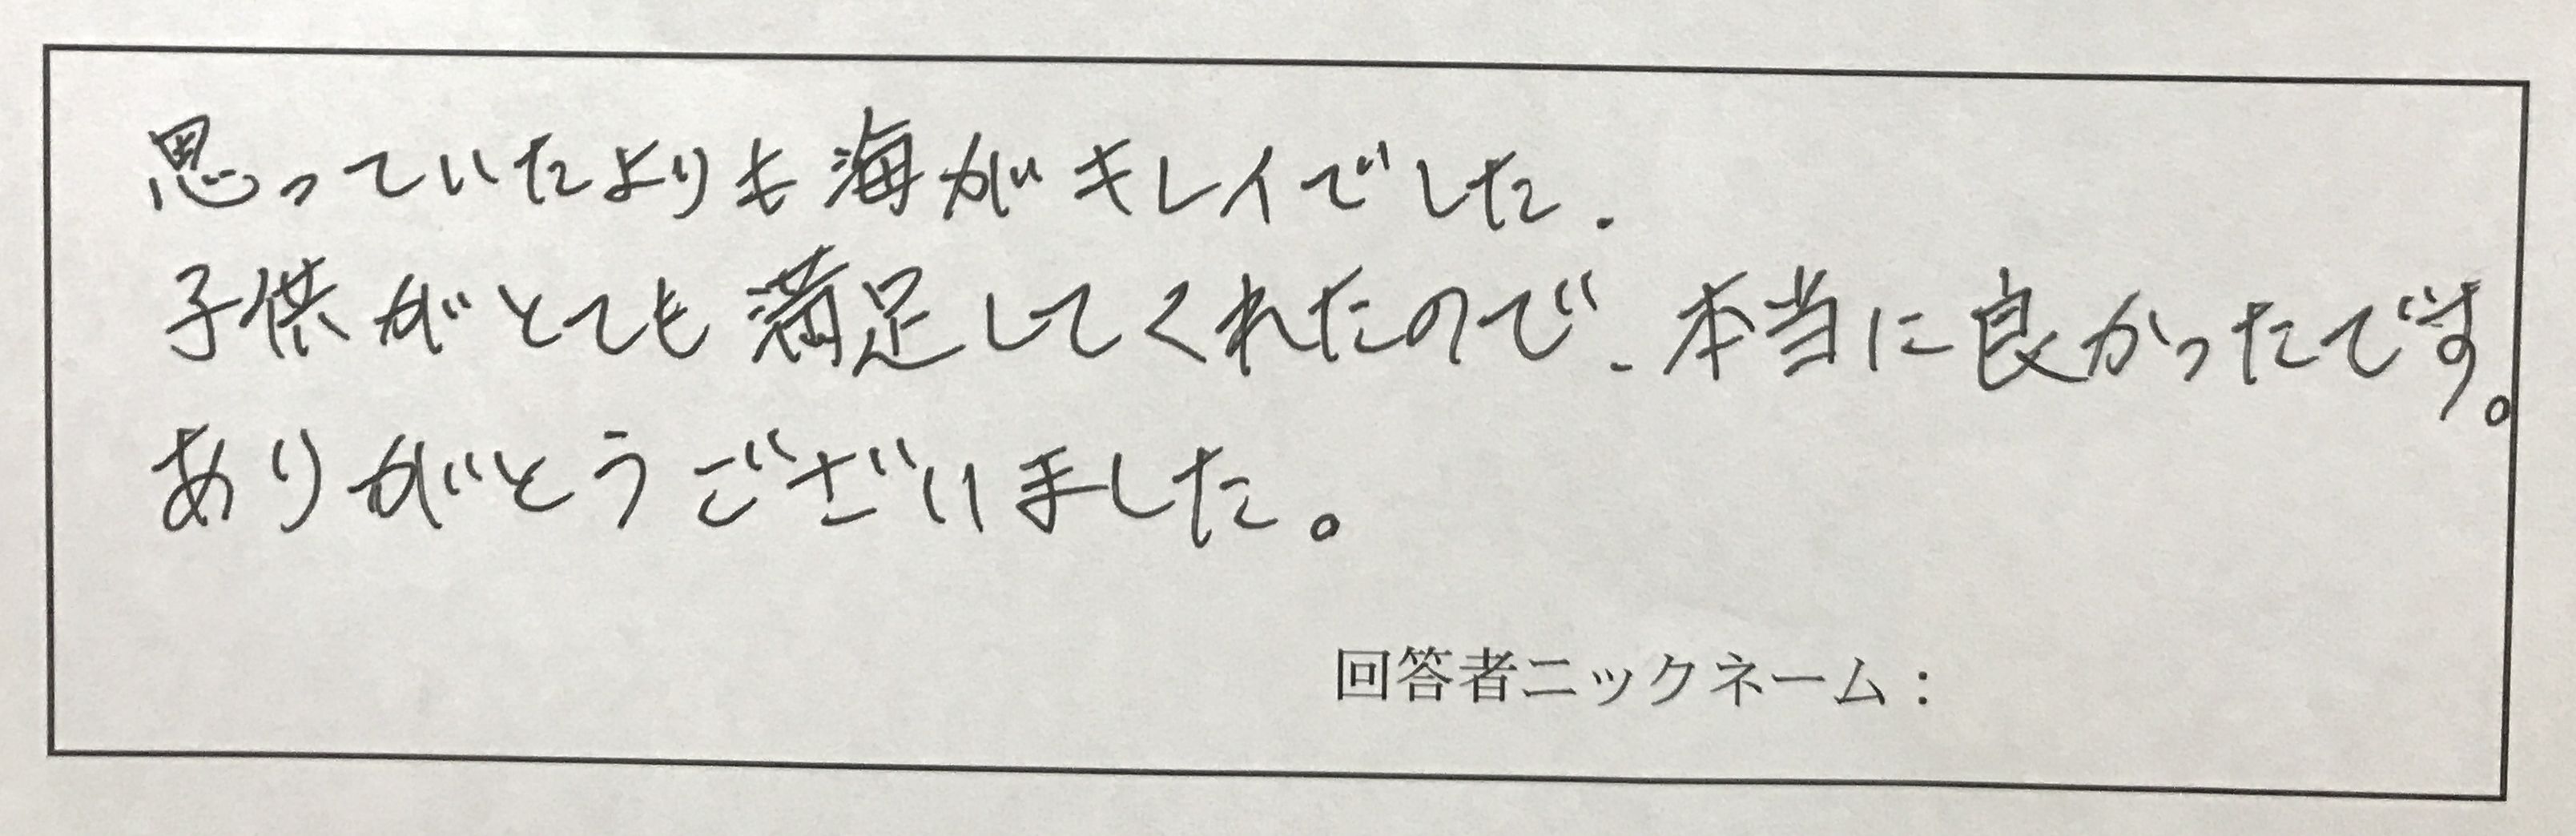 思っていたよりも海がキレイでした.
子供がとても満足してくれたので、本当に良かったです。
ありがとうございました。
回答者ニックネーム：